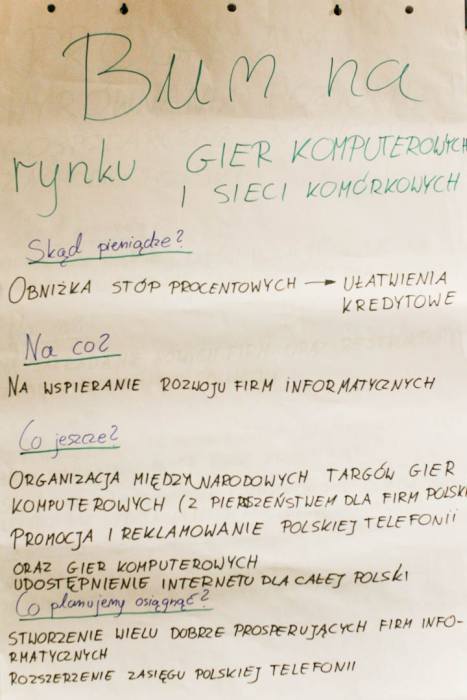 Bum na
rynku GIER KOMPUTEROWYCH
I SIECI KOMÓRKOWYCH
Skąd pieniądze?
OBNIŻKA STÓP PROCENTOWYCH → UŁATWIENIA
KREDYTOWE
Na co?
NA WSPIERANIE ROZWOJU FIRM INFORMATYCZNYCH
Co jeszcze?
ORGANIZACJA MIĘDZYNARODOWYCH TARGÓW GIER
KOMPUTEROWYCH (Z PIERSZEŃSTWEM DLA FIRM POLSKI
PROMOCJA I REKLAMOWANIE POLSKIEJ TELEFONII
ORAZ GIER KOMPUTEROWYCH
UDOSTĘPNIENIE INTERNETU DLA CAŁEJ POLSKI
Co planujemy osiągnąć?
STWORZENIE WIELU DOBRZE PROSPERUJĄCYCH FIRM INFO-
RMATYCZNYCH
ROZSZERZENIE ZASIĘGU POLSKIEJ TELEFONII